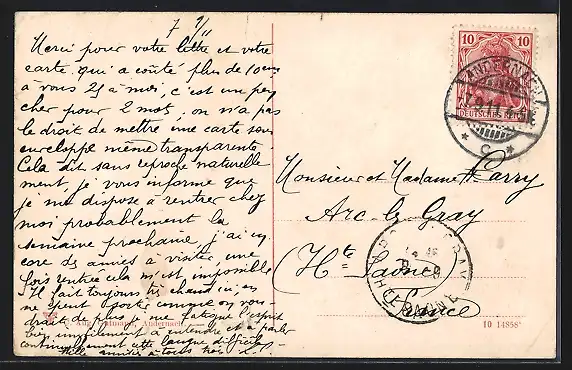 7 9/11
Merci pour votre lettre et votre
carte qui a coûté plus de 10 cms
à vous 25 à moi, c'est un peu
cher pour 2 mots, on n'a pas
le droit de mettre une carte sous
enveloppe même transparente.
Cela dit sans reproche naturelle
ment, je vous informe que
je me dispose à rentrer chez
moi probablement la
semaine prochaine, j'ai en
core des amies à visiter, une
fois rentrée cela m'est impossible
Il fait toujours si chaud ici, on
ne peut sortir comme on vou
drait de plus je me fatigue l'esprit
à entendre et parler
continuellement cette langue difficile
Mille amitiés à tous trois
Monsieur et Madame Parry
Arc-les-Gray
(Hte Saône)
France
10
DEUTSCHES REICH
ANDERNACH
C
GRAY
HTE SAONE
Andernach
10 14858